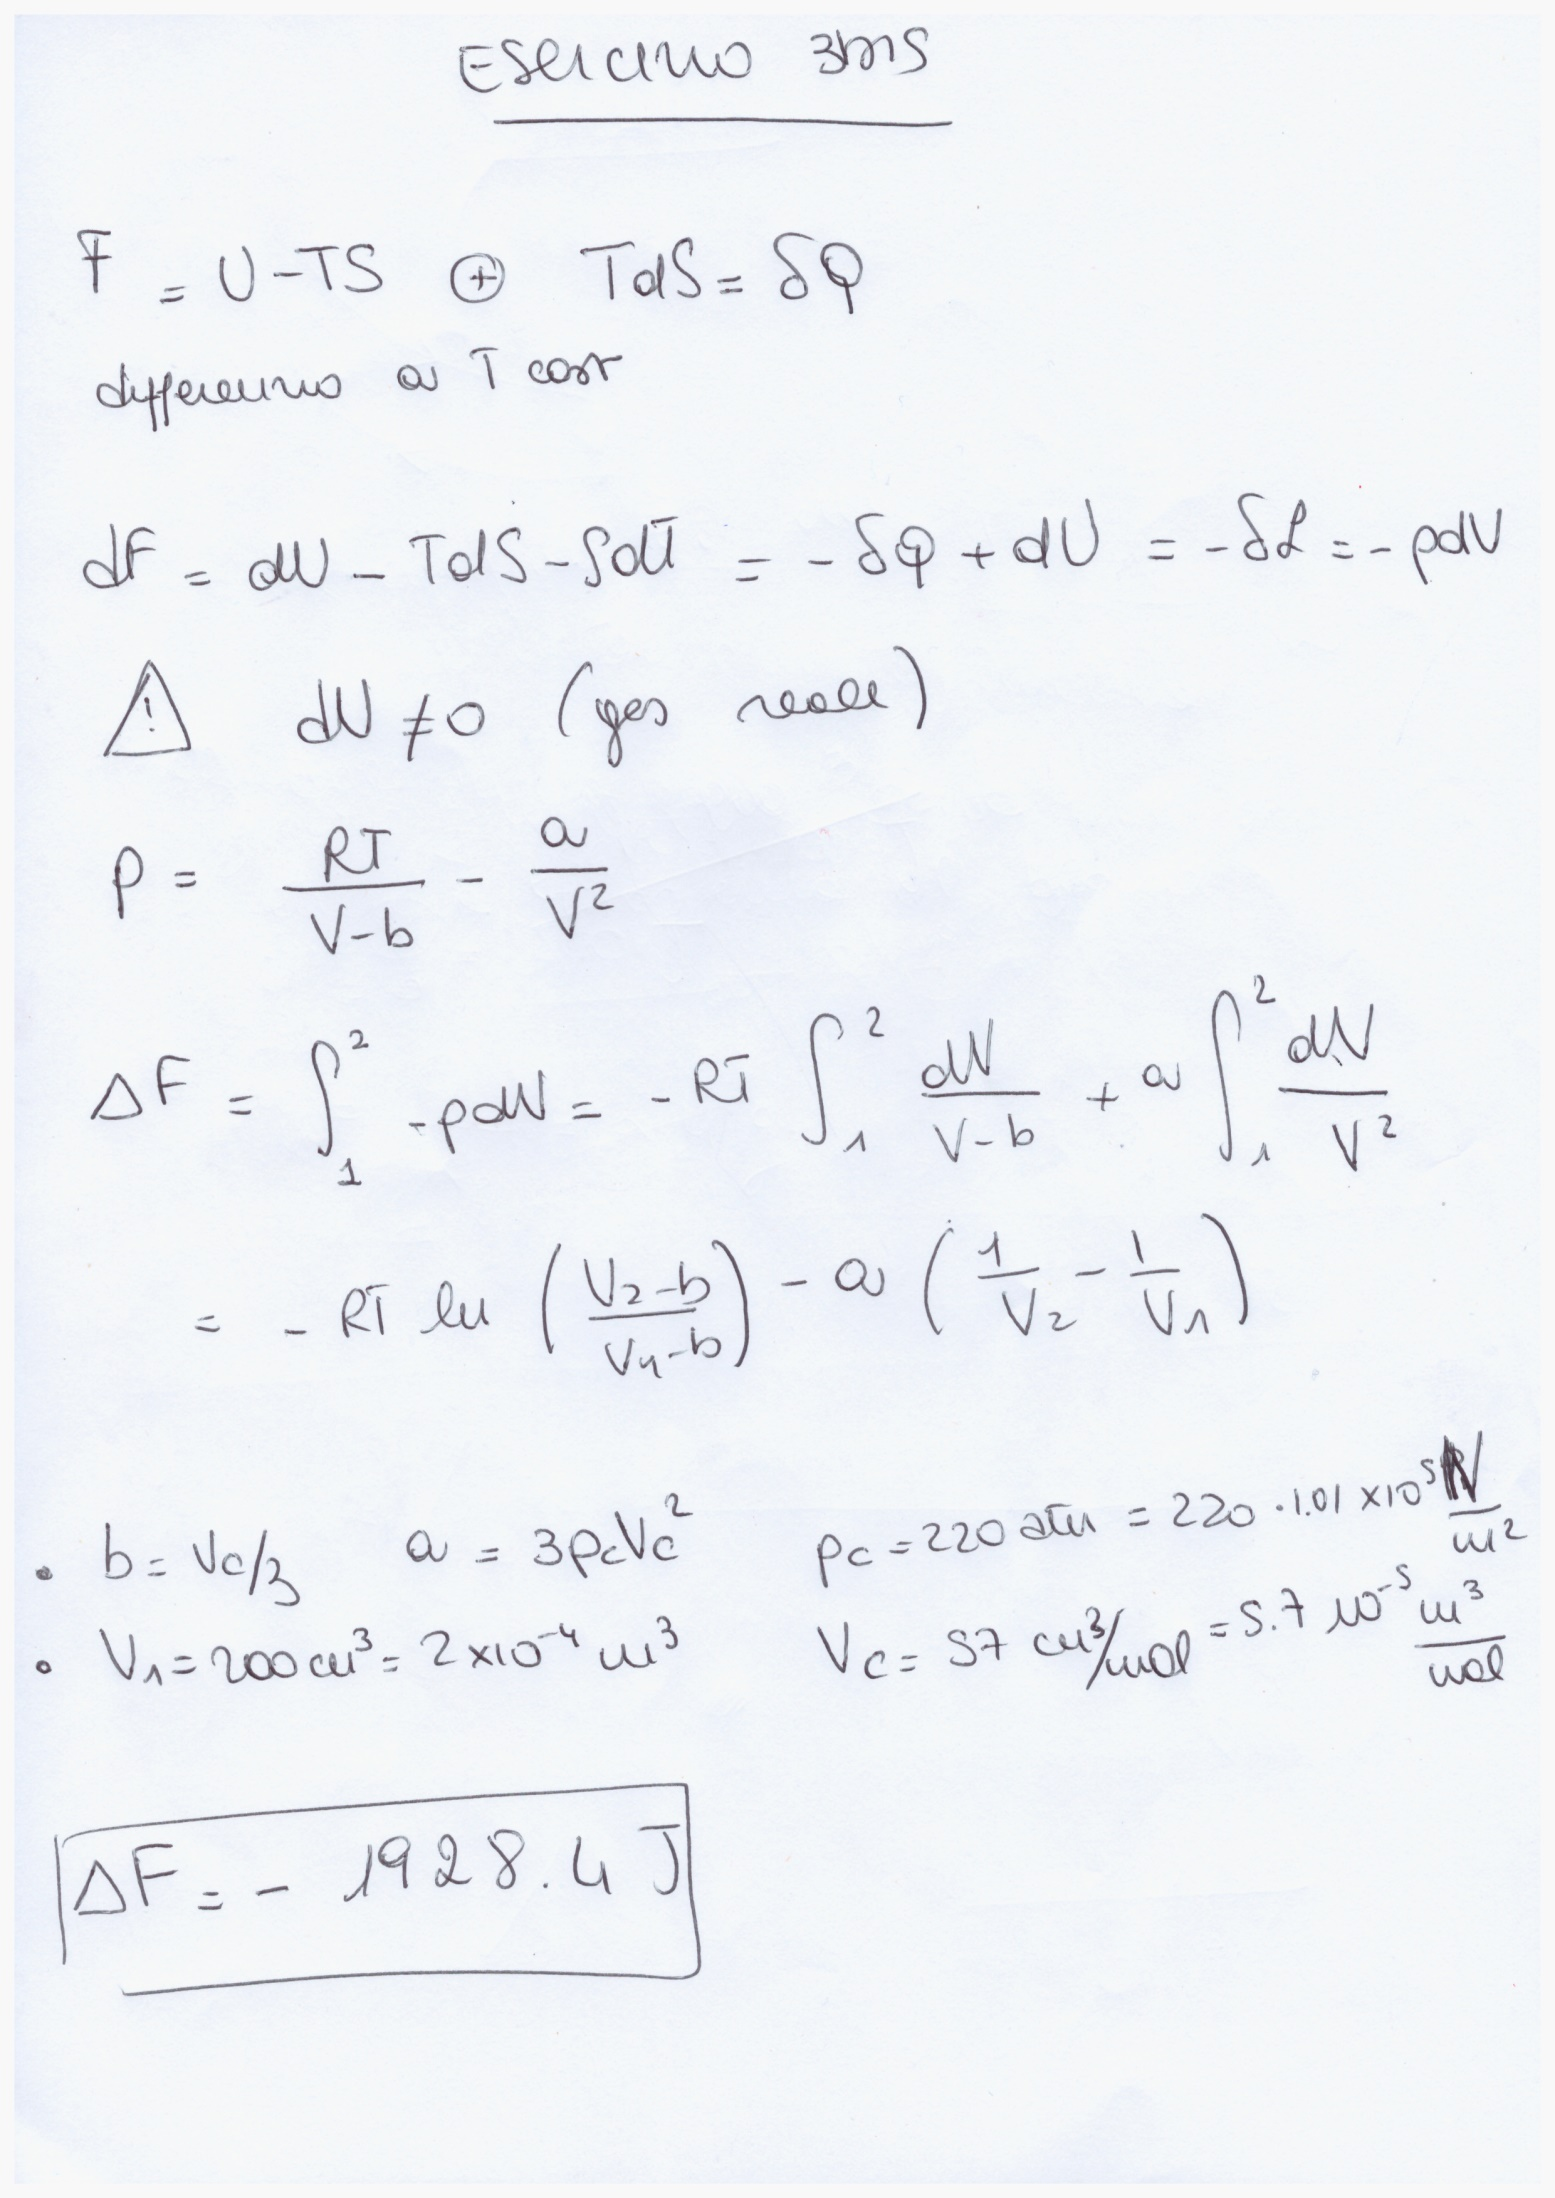 Esercizio 3bis
F = U-TS ⊕ TdS = δQ
differenzio a T cost
dF = dU - TdS - SdT = - δQ + dU = - δL = - pdV
! dU ≠ 0 (gas reale)
p = RT/(V-b) - a/V²
ΔF = ∫₁² -pdV = - RT ∫₁² dV/(V-b) + a ∫₁² dV/V²
= - RT ln ((V₂-b)/(V₁-b)) - a (1/V₂ - 1/V₁)
• b = Vc/3 a = 3pcVc² pc = 220 atm = 220 · 1.01 x10⁵ N/m²
• V₁ = 200 cm³ = 2x10⁻⁴ m³ Vc = 57 cm³/mol = 5.7 10⁻⁵ m³/mol
ΔF = - 1928.4 J